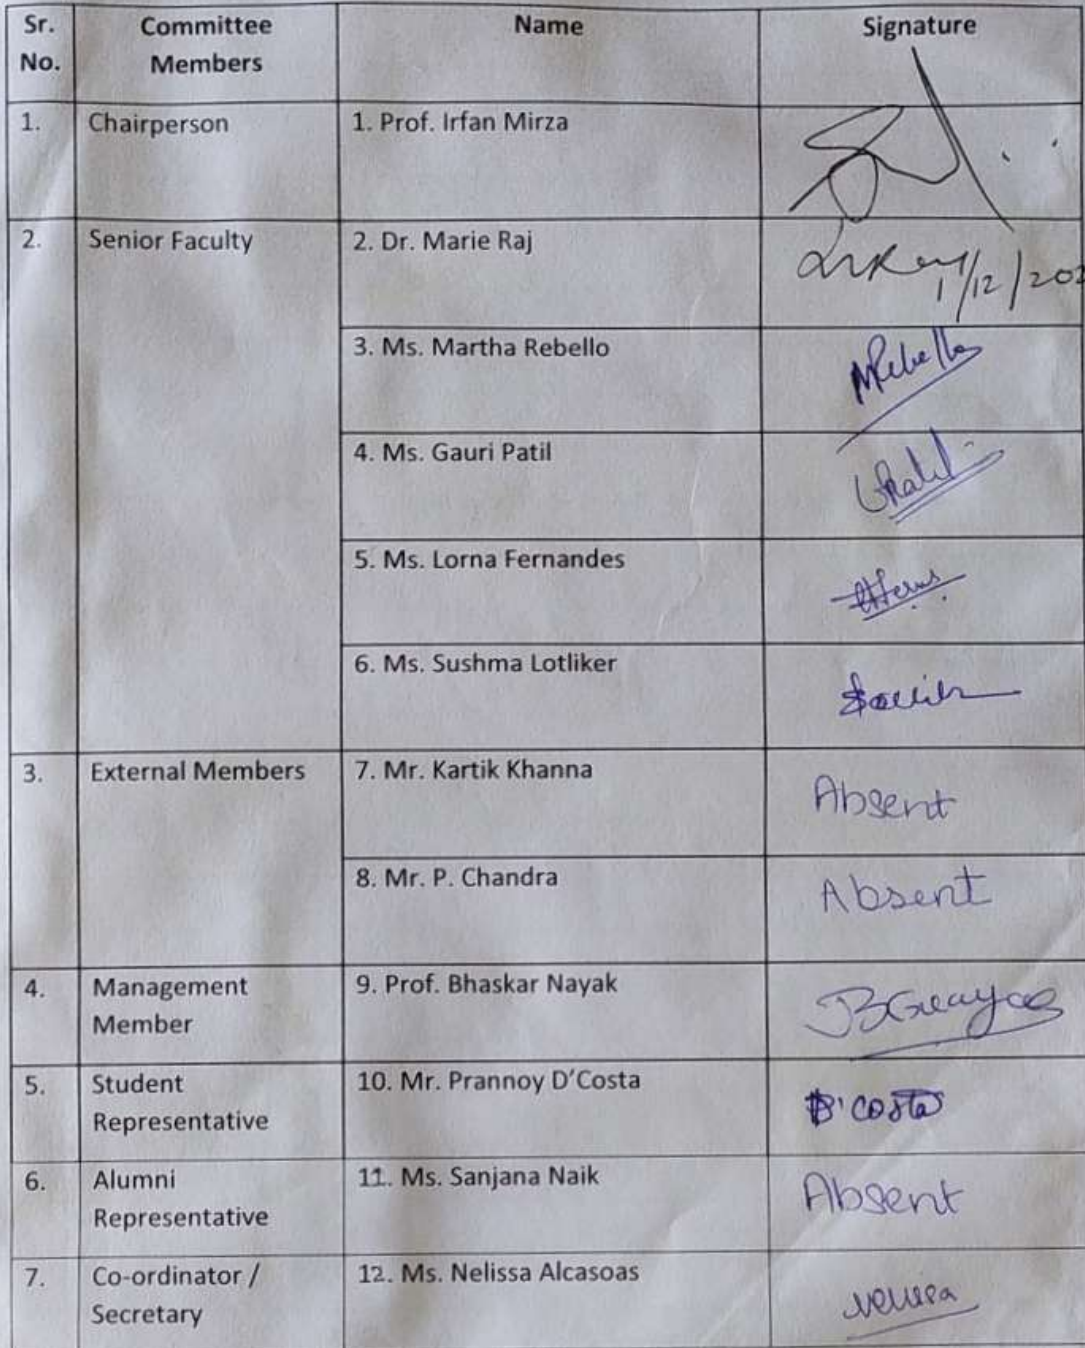 Sr. No. Committee Members Name Signature
1. Chairperson 1. Prof. Irfan Mirza
2. Senior Faculty 2. Dr. Marie Raj
1/12/202
3. Ms. Martha Rebello MRebello
4. Ms. Gauri Patil GPatil
5. Ms. Lorna Fernandes
6. Ms. Sushma Lotliker
3. External Members 7. Mr. Kartik Khanna Absent
8. Mr. P. Chandra Absent
4. Management Member 9. Prof. Bhaskar Nayak
5. Student Representative 10. Mr. Prannoy D'Costa D'Costa
6. Alumni Representative 11. Ms. Sanjana Naik Absent
7. Co-ordinator / Secretary 12. Ms. Nelissa Alcasoas